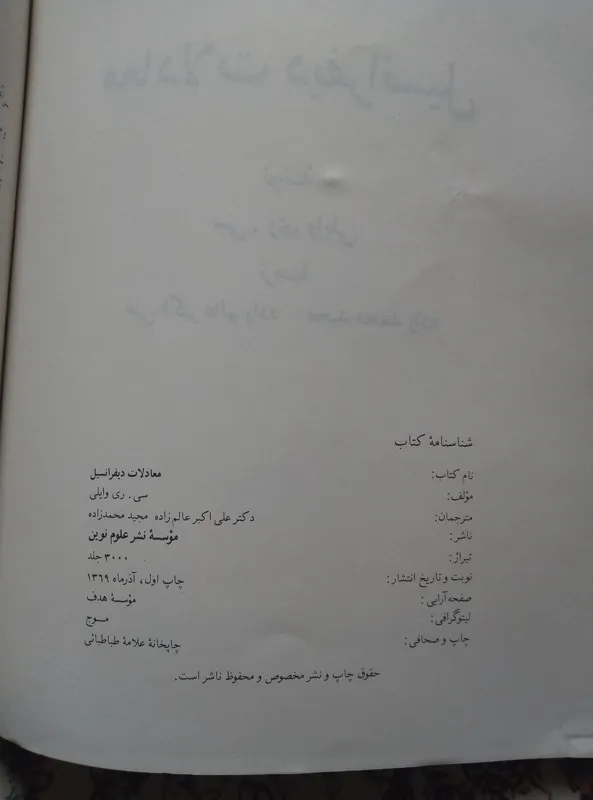 شناسنامهٔ کتاب
نام کتاب: معادلات دیفرانسیل
مؤلف: سی. ری وایلی
مترجمان: دکتر علی اکبر عالم زاده مجید محمدزاده
ناشر: مؤسسهٔ نشر علوم نوین
تیراژ: ۳۰۰۰ جلد
نوبت و تاریخ انتشار: چاپ اول، آذرماه ۱۳۶۹
صفحه‌آرایی: مؤسسهٔ هدف
لیتوگرافی: مـوج
چاپ و صحافی: چاپخانهٔ علامهٔ طباطبائی
حقوق چاپ و نشر مخصوص و محفوظ ناشر است.